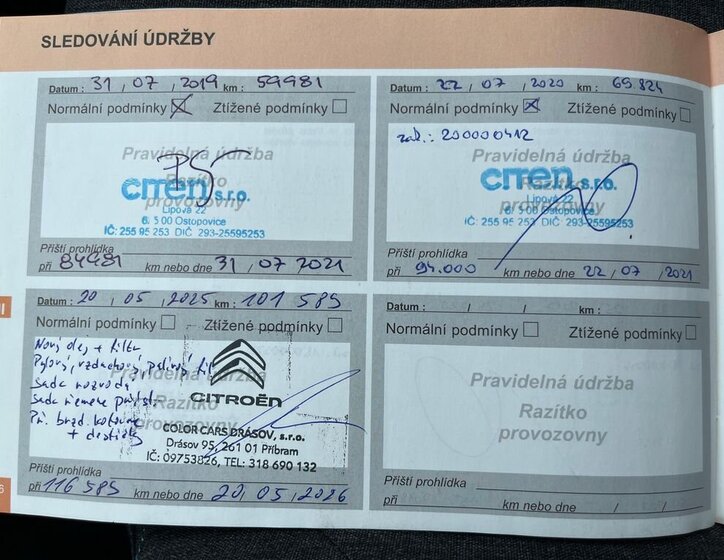 SLEDOVÁNÍ ÚDRŽBY
Datum : 31 , 07 , 2019 km : 59981
Normální podmínky Ztížené podmínky
Pravidelná údržba
PS
CITEN s.r.o.
Razítko
provozovny
Lipová 22
6 5 00 Ostopovice
IČ: 255 95 253 DIČ 293-25595253
Příští prohlídka
při 84981 km nebo dne 31 , 07 , 2021
Datum : 22 , 07 , 2020 km : 69.824
Normální podmínky Ztížené podmínky
zak.: 200000412
Pravidelná údržba
CITEN s.r.o.
Razítko
provozovny
Lipová 22
6 5 00 Ostopovice
IČ: 255 95 253 DIČ 293-25595253
Příští prohlídka
při 94.000 km nebo dne 22 / 07 / 2021
Datum : 20 , 05 , 2025 km : 101 585
Normální podmínky Ztížené podmínky
Nový olej + filtr
Pylový, vzduchový, palivový fil
Sada rozvodů
Sada řemene
Př. brzd. kotouče
+ destičky
Pravidelná údržba
Razítko
provozovny
CITROËN
COLOR CARS DRÁSOV, s.r.o.
Drásov 95, 261 01 Příbram
IČ: 09753826, TEL: 318 690 132
Příští prohlídka
při 116 585 km nebo dne 20 , 05 , 2026
Datum : / / km :
Normální podmínky Ztížené podmínky
Pravidelná údržba
Razítko
provozovny
Příští prohlídka
při km nebo dne / /